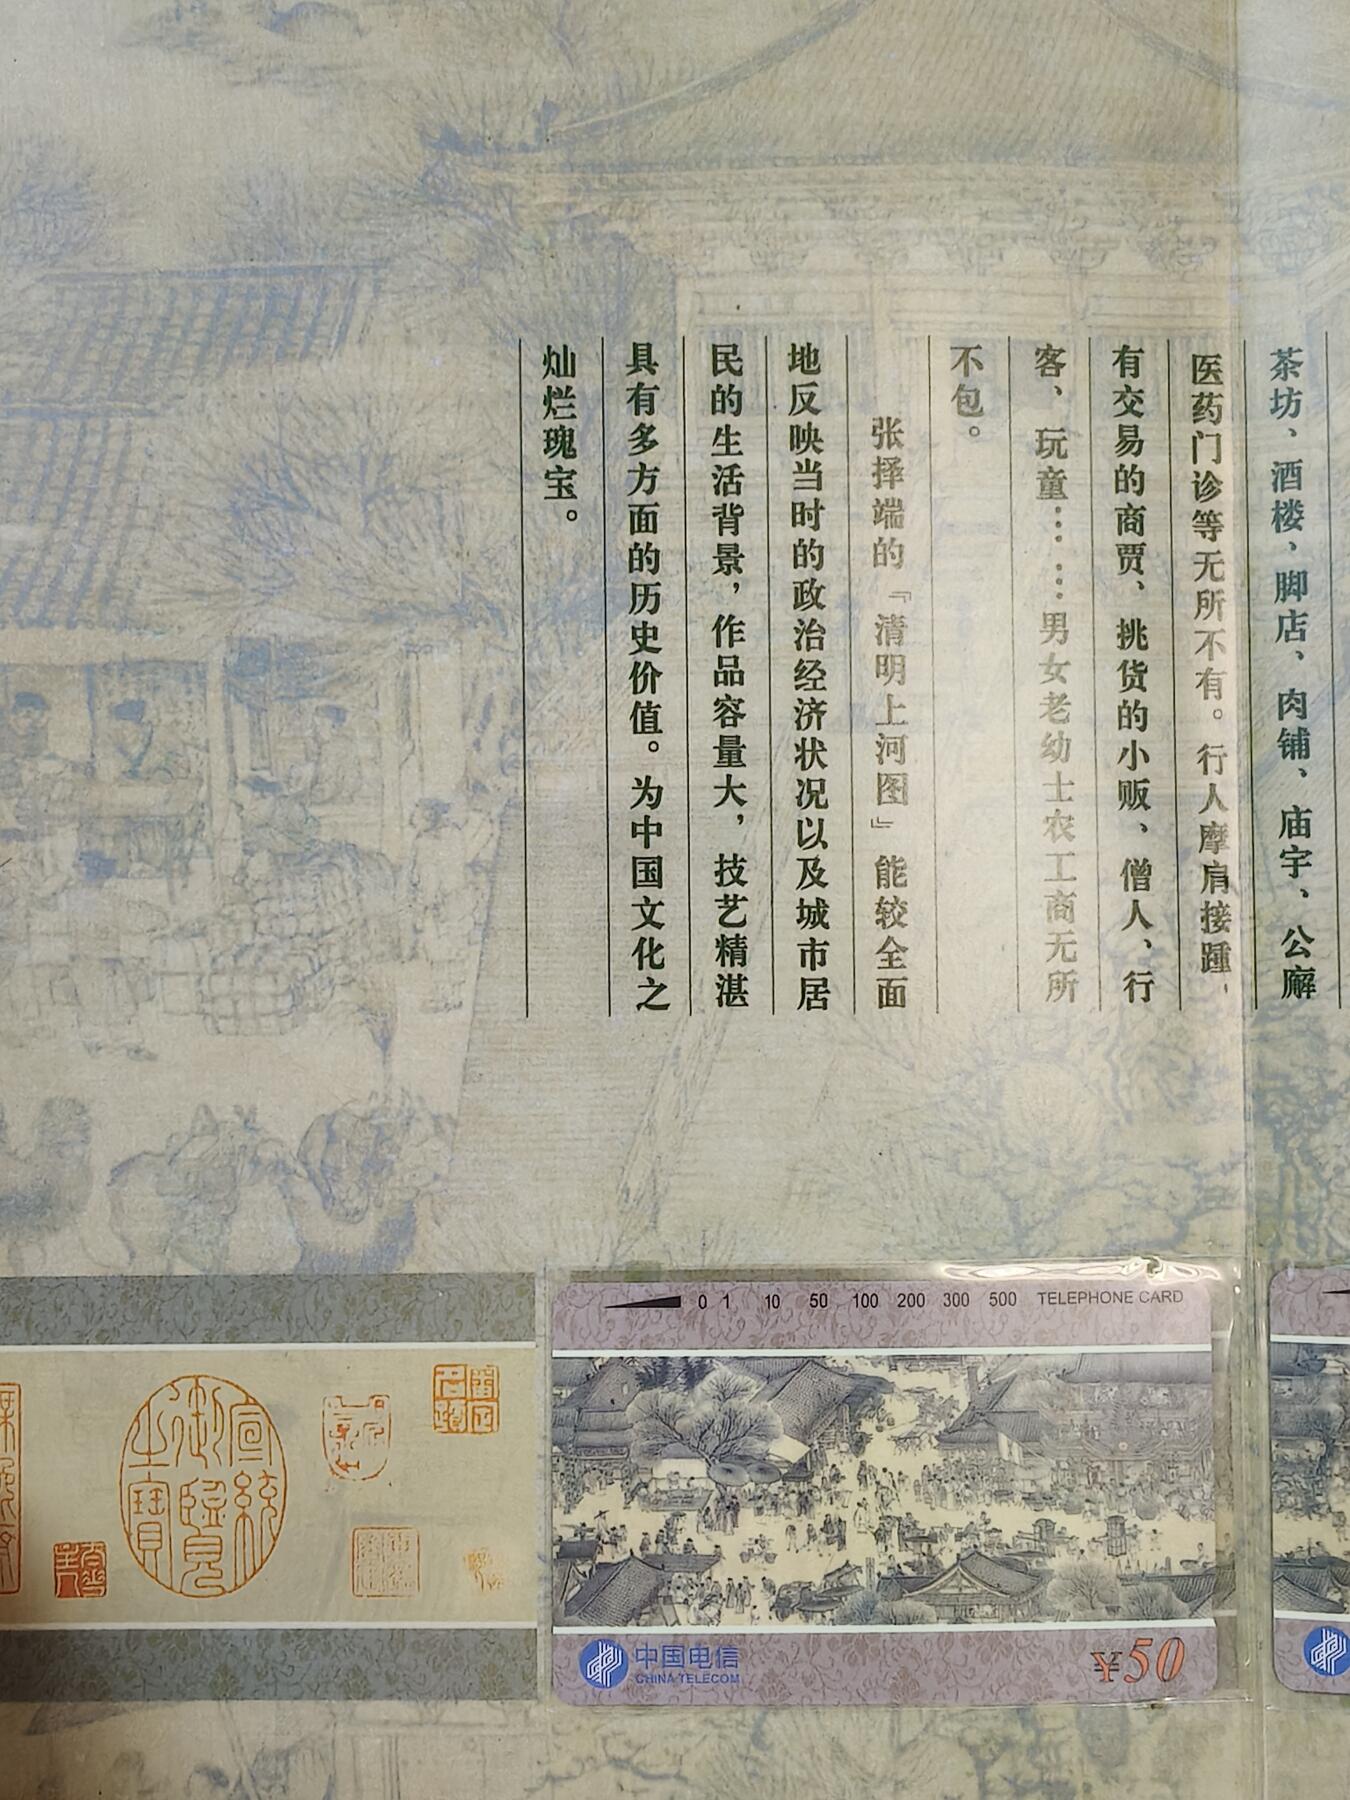 茶坊、酒楼、脚店、肉铺、庙宇、公廨
医药门诊等无所不有。行人摩肩接踵，
有交易的商贾、挑货的小贩、僧人、行
客、玩童……男女老幼士农工商无所
不包。
张择端的『清明上河图』能较全面
地反映当时的政治经济状况以及城市居
民的生活背景，作品容量大，技艺精湛
具有多方面的历史价值。为中国文化之
灿烂瑰宝。
0 1 10 50 100 200 300 500 TELEPHONE CARD
宣統御覽之寶
中国电信
CHINA TELECOM
¥50